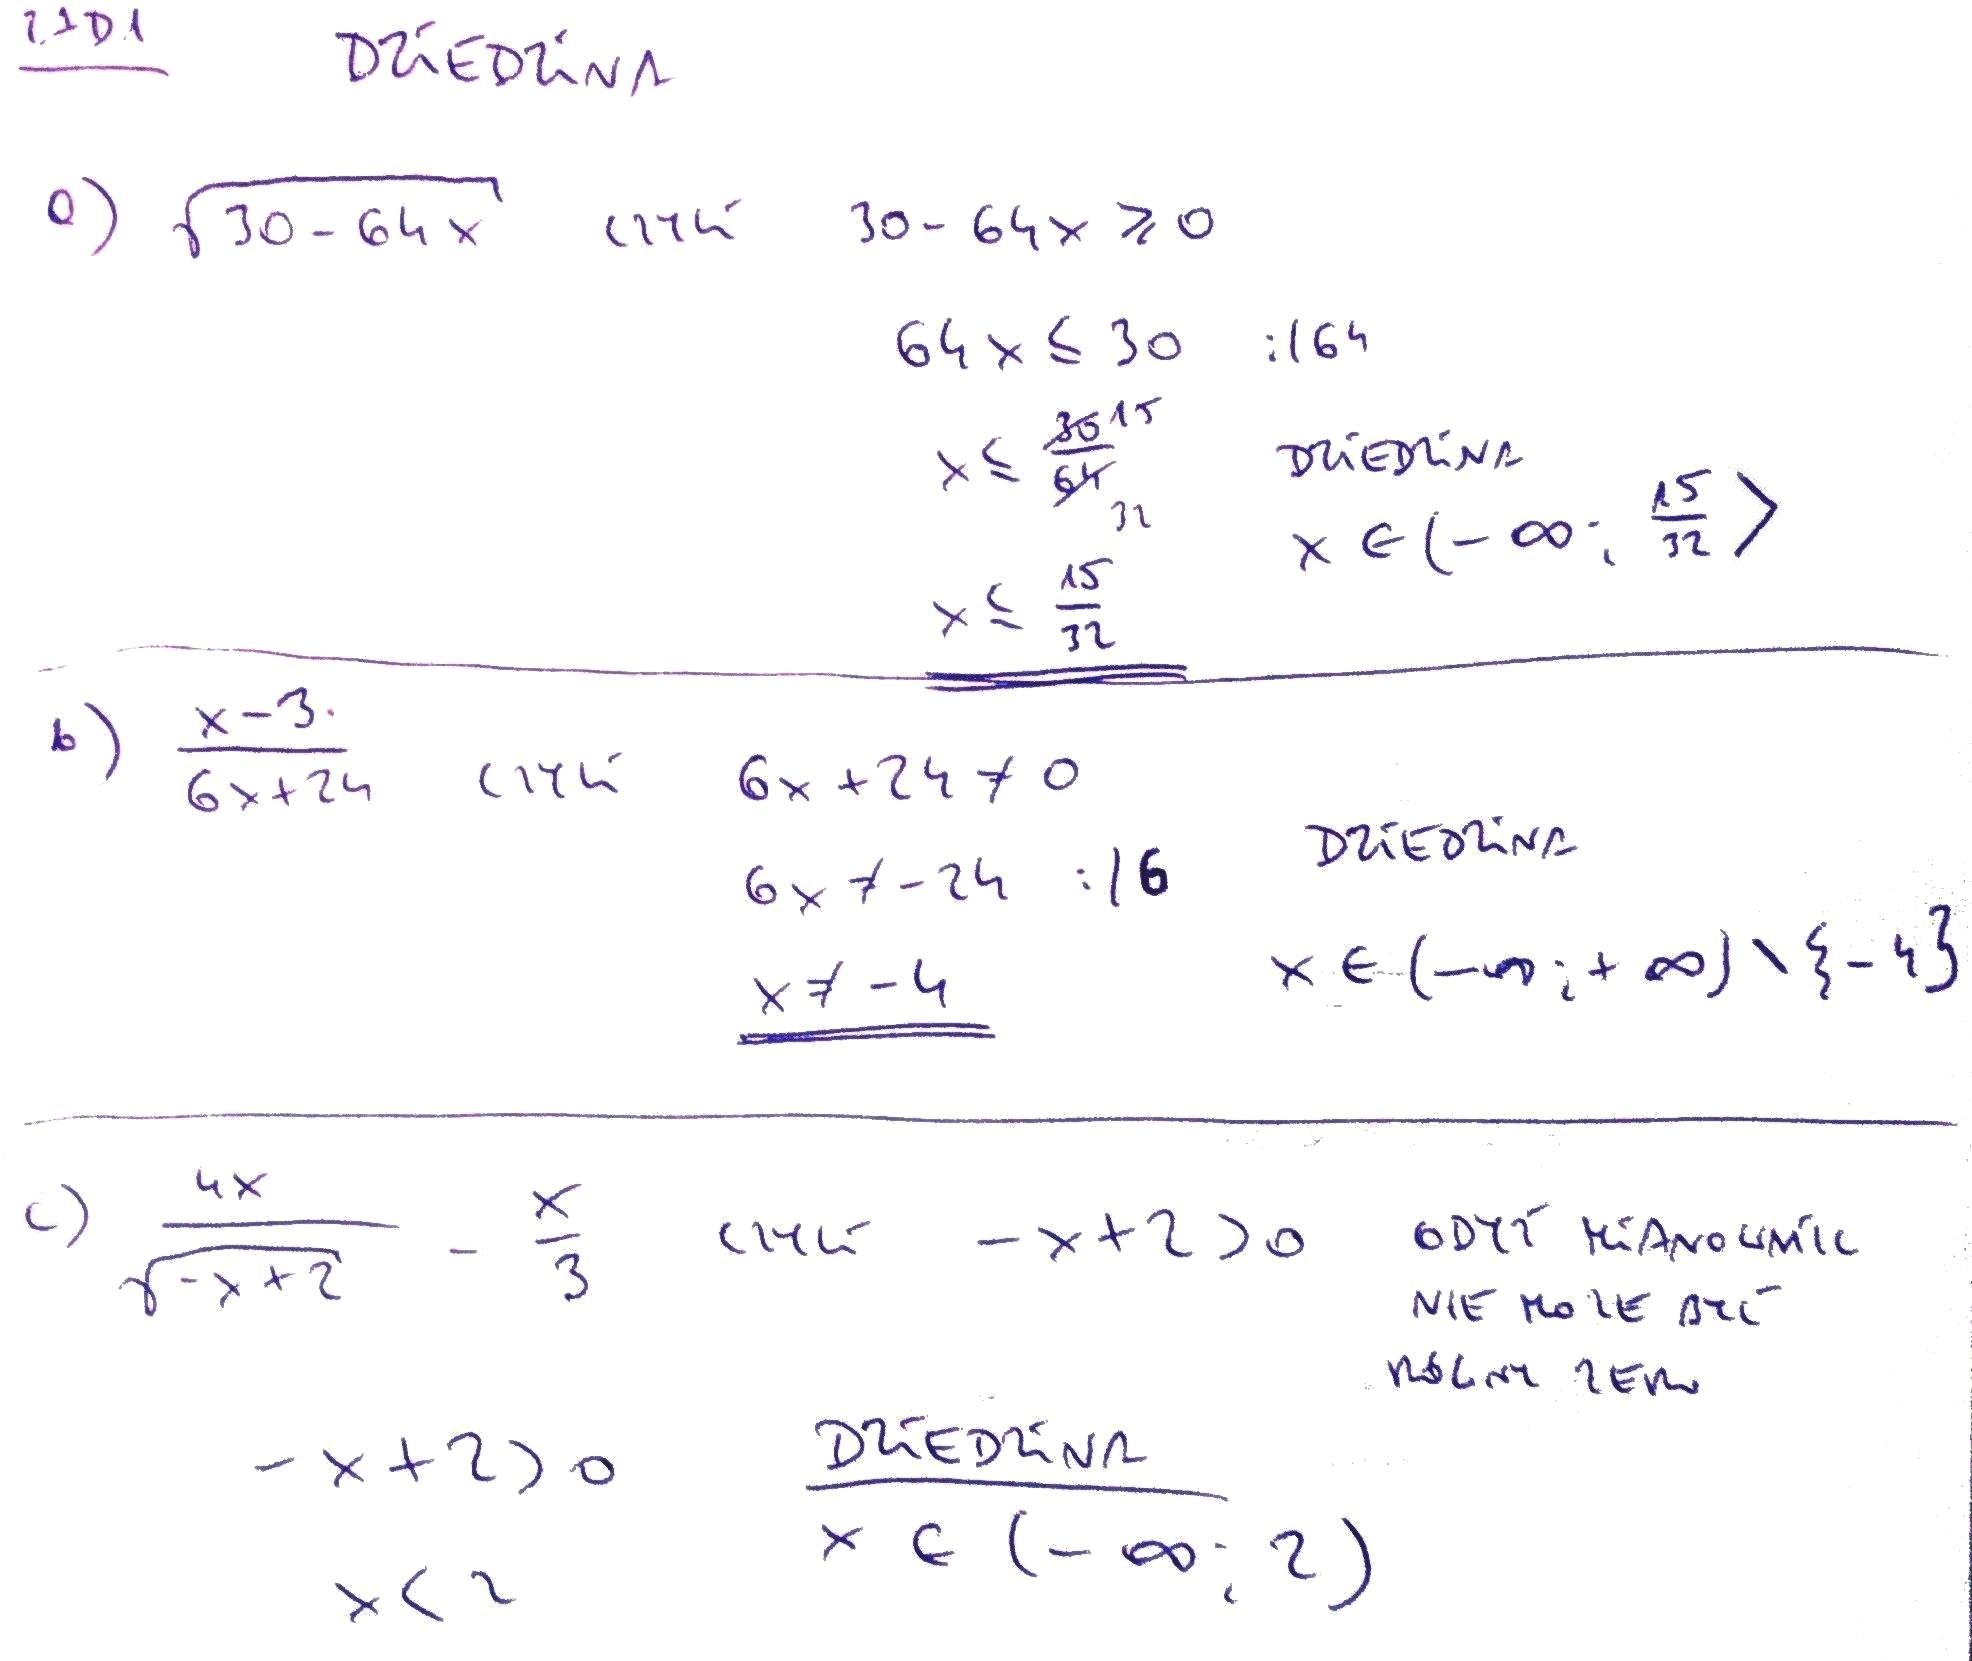 ZAD1 DZIEDZINA
a) √(30-64x) CZYLI 30-64x ⩾ 0
64x ≤ 30 :/64
x ≤ 30/64 15 32
DZIEDZINA
x ∈ (-∞; 15/32>
x ≤ 15/32
b) (x-3)/(6x+24) CZYLI 6x+24 ≠ 0
6x ≠ -24 :/6
x ≠ -4
DZIEDZINA
x ∈ (-∞;+∞) \ {-4}
c) 4x/√(-x+2) - x/3 CZYLI -x+2>0 GDYŻ MIANOWNIK
NIE MOŻE BYĆ
RÓWNY ZERO
-x+2>0
x<2
DZIEDZINA
x ∈ (-∞; 2)